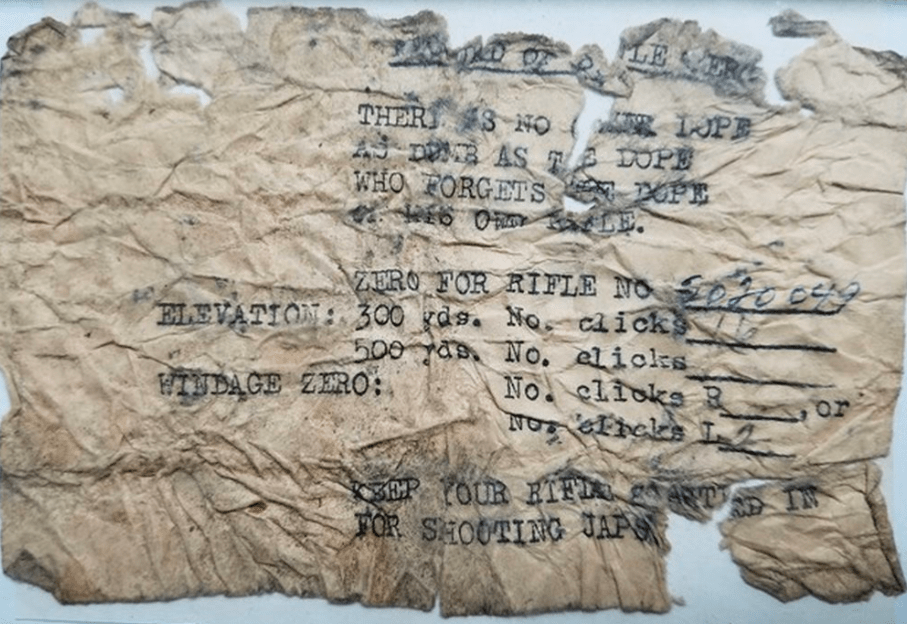 OF
THERE IS NO DOPE
AS DUMB AS THE DOPE
WHO FORGETS THE DOPE
HIS OWN RIFLE.
ZERO FOR RIFLE NO
ELEVATION: 300 yds. No. clicks 16
500 yds. No. clicks
WINDAGE ZERO: No. clicks R____,or
No. clicks L 2
KEEP YOUR RIFLE IN
FOR SHOOTING JAPS